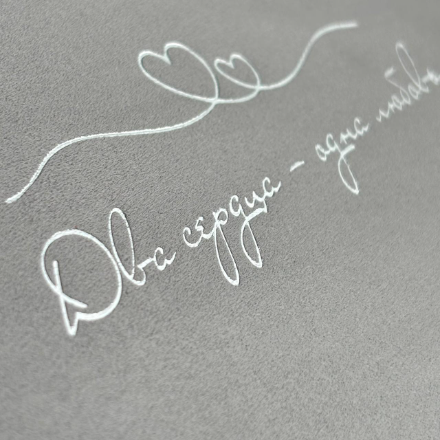 Два сердца - одна любовь